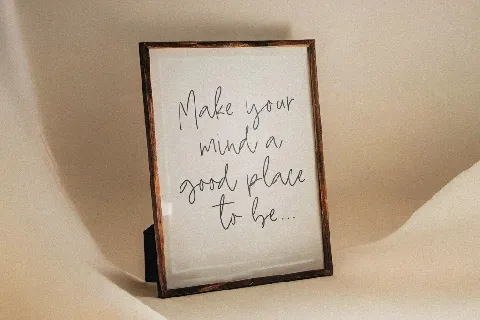 Make your
mind a
good place
to be...